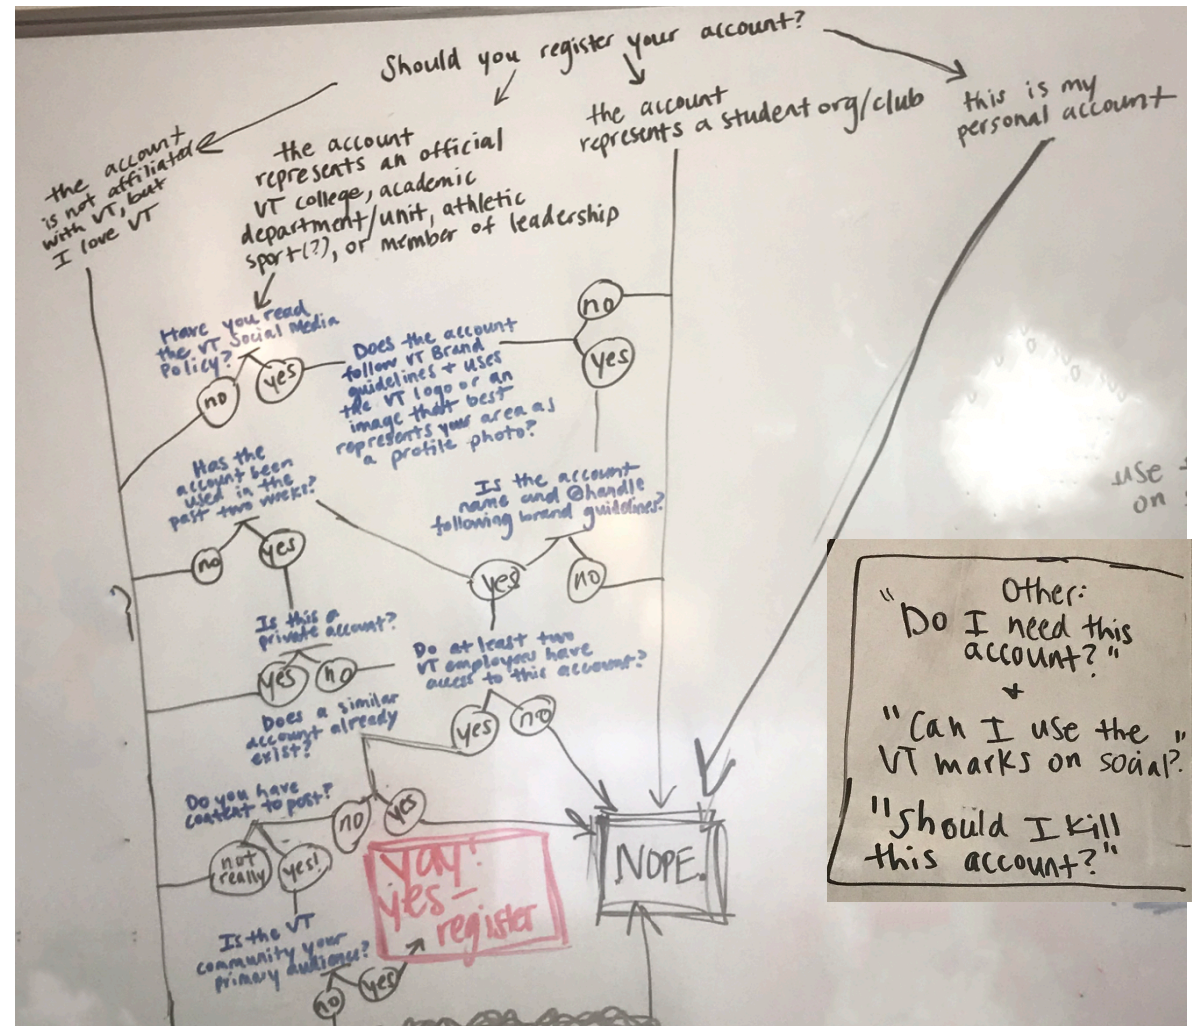 Should you register your account?
the account
is not affiliated
with VT, but
I love VT
the account
represents an official
VT college, academic
department/unit, athletic
sport(?), or member of leadership
the account
represents a student org/club
this is my
personal account
Have you read
the VT Social Media
Policy?
no
yes
Does the account
follow VT Brand
guidelines + uses
the VT logo or an
image that best
represents your area as
a profile photo?
no
yes
Has the
account been
used in the
past two weeks?
no
yes
Is the account
name and @handle
following brand guidelines?
yes
no
Is this a
private account?
yes
no
Do at least two
VT employees have
access to this account?
yes
no
Does a similar
account already
exist?
no
yes
Do you have
content to post?
not
really
yes!
yay!
yes -
register
NOPE.
Is the VT
community your
primary audience?
no
yes
use
on
Other:
"Do I need this
account?"
+
"Can I use the
VT marks on social?"
"Should I kill
this account?"